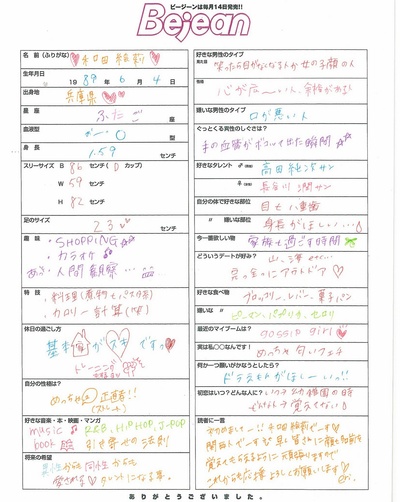 ビージーンは毎月14日発売!!
Bejean
名前(ふりがな)
生年月日
1989年6月4日
出身地
兵庫県
星座
ふたご 座
血液型
O 型
身長
159 センチ
スリーサイズ B 86 センチ(D カップ)
W 59 センチ
H 82 センチ
足のサイズ
23 センチ
趣味
・SHOPPING
・カラオケ
・人間観察…
特技
カロリー計算
休日の過ごし方
基本家がスキです
トレーニング
自分の性格は?
めっちゃ正直!!
好きな音楽・本・映画・マンガ
music R&B、HIPHOP、J-POP
book 引き寄せの法則
将来の希望
男性からも同性からも
愛されるタレントになる事。
好きな男性のタイプ
笑ったら目がなくなる人か女の子顔の人
心が広い人、余裕がある人
嫌いな男性のタイプ
口が悪い人
ぐっとくる異性のしぐさは?
手の血管がボコって出た瞬間
好きなタレント ♂
高田純次サン
♀
長谷川潤サン
自分の体で好きな部位
目と八重歯
〃 嫌いな部位
身長がほしい…
今一番欲しい物
家族と過ごす時間
どういうデートが好み?
山、海
アウトドア
好きな食べ物
ブロッコリー、レバー、菓子パン
嫌いな 〃
ピーマン、パプリカ、セロリ
最近のマイブームは?
gossip girl
実は私○○なんです!
めっちゃ匂いフェチ
何か一つ願いがかなうとしたら?
ドラえもんがほしーいっ!!
初恋はいつ?どんな人でした?
幼稚園の時
ぜんぜん覚えてない
読者に一言
初めまして!!
関西人
覚えてもらえるように頑張りますので
これから応援よろしくお願いします
eri.
ありがとうございました。